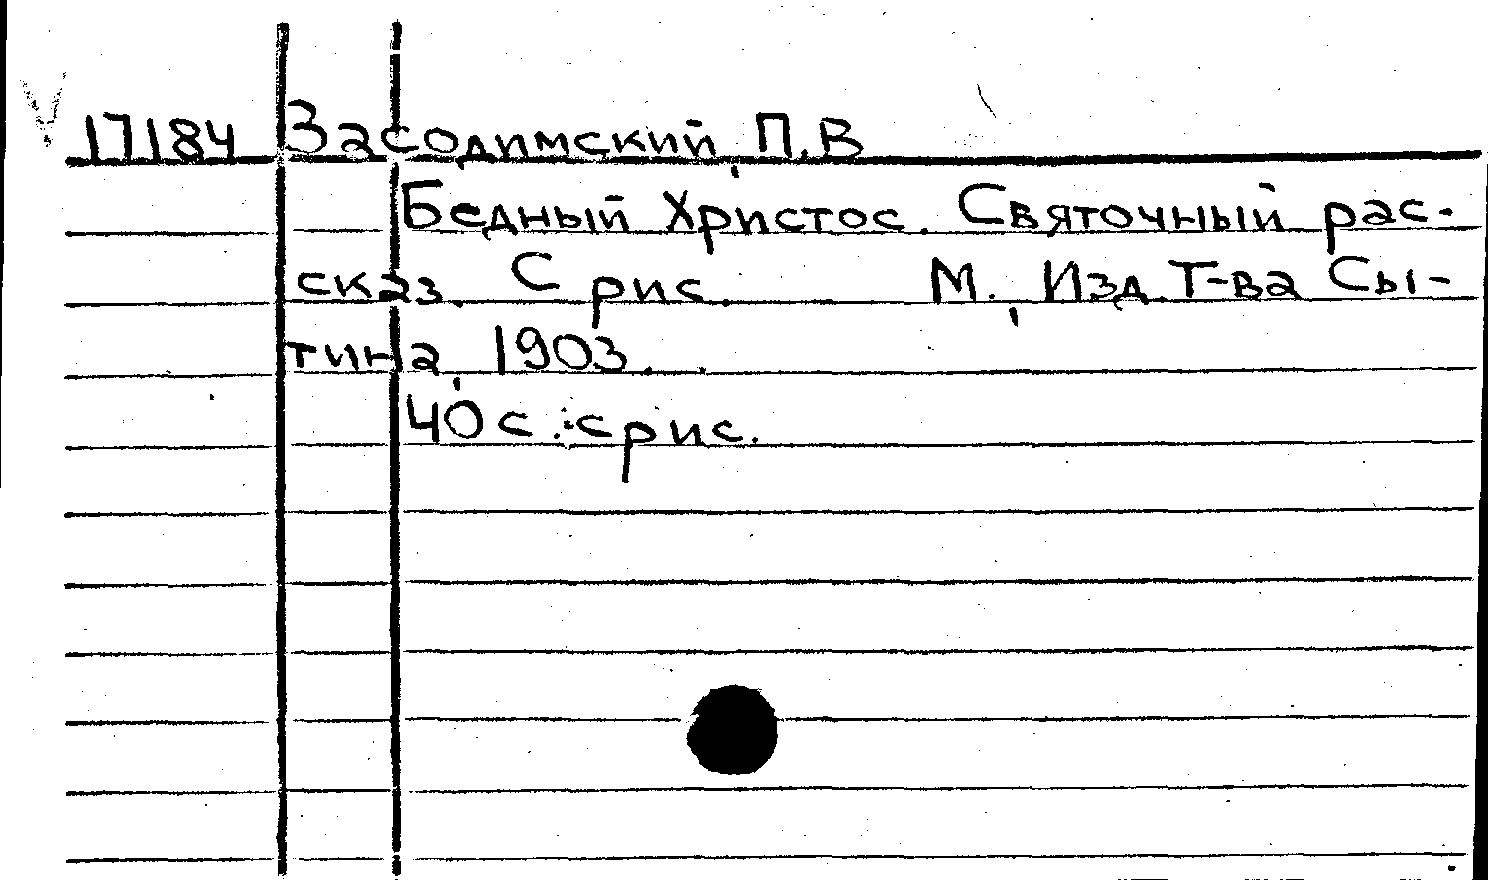 17184 Засодимский, П.В
Бедный Христос. Святочный рас-
сказ. С рис. М., Изд. Т-ва Сы-
тина, 1903.
40 с. с рис.